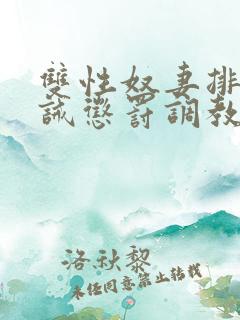 雙性奴妻排
誡懲罰調教
洛秋黎
未经同意禁止转载